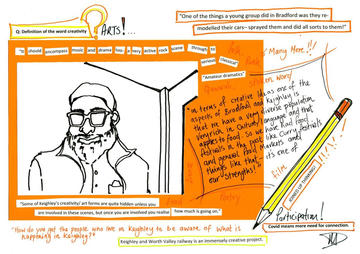 Q: Definition of the word creativity
ARTS!...
"One of the things a young group did in Bradford was they re-
modelled their cars- sprayed them and did all sorts to them!"
"It should encompass music and drama has a very active rock scene through to
serious classical"
"Amateur dramatics"
Many More!!!
Folk
Spoken Word
"In terms of creative ideas one of the
aspects of Bradford and Keighley is
that we have a very diverse population
very rich in Culture/language and that
applies to food. So we have had food
festivals in the past like Curry festivals
and general food markets and
things like that - it's one of
our strengths!"
Film
Poetry
JOINED UP THINKING
"Some of Keighley's creativity/ art forms are quite hidden unless you
are involved in these scenes, but once you are involved you realise
how much is going on."
Participation!
Covid means more need for connection.
"How do you get the people who live in Keighley to be aware of what is
happening in Keighley?"
Keighley and Worth Valley railway is an immensely creative project.